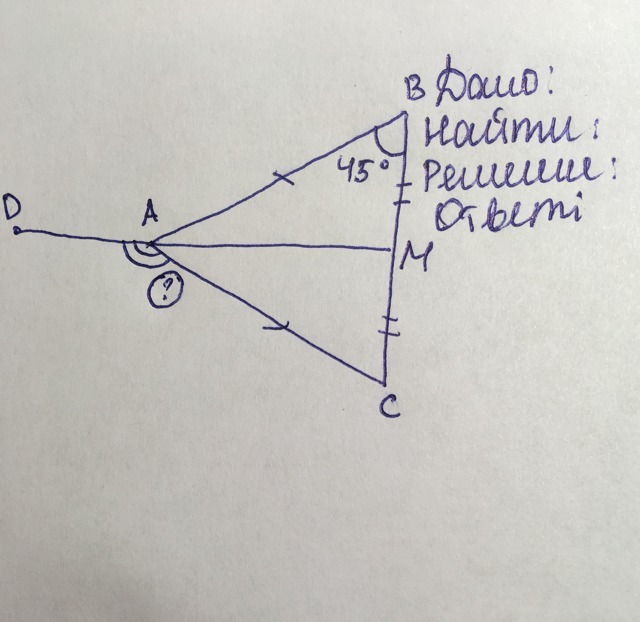 B Дано:
Найти:
45° Решение:
D A Ответ:
M
?
C